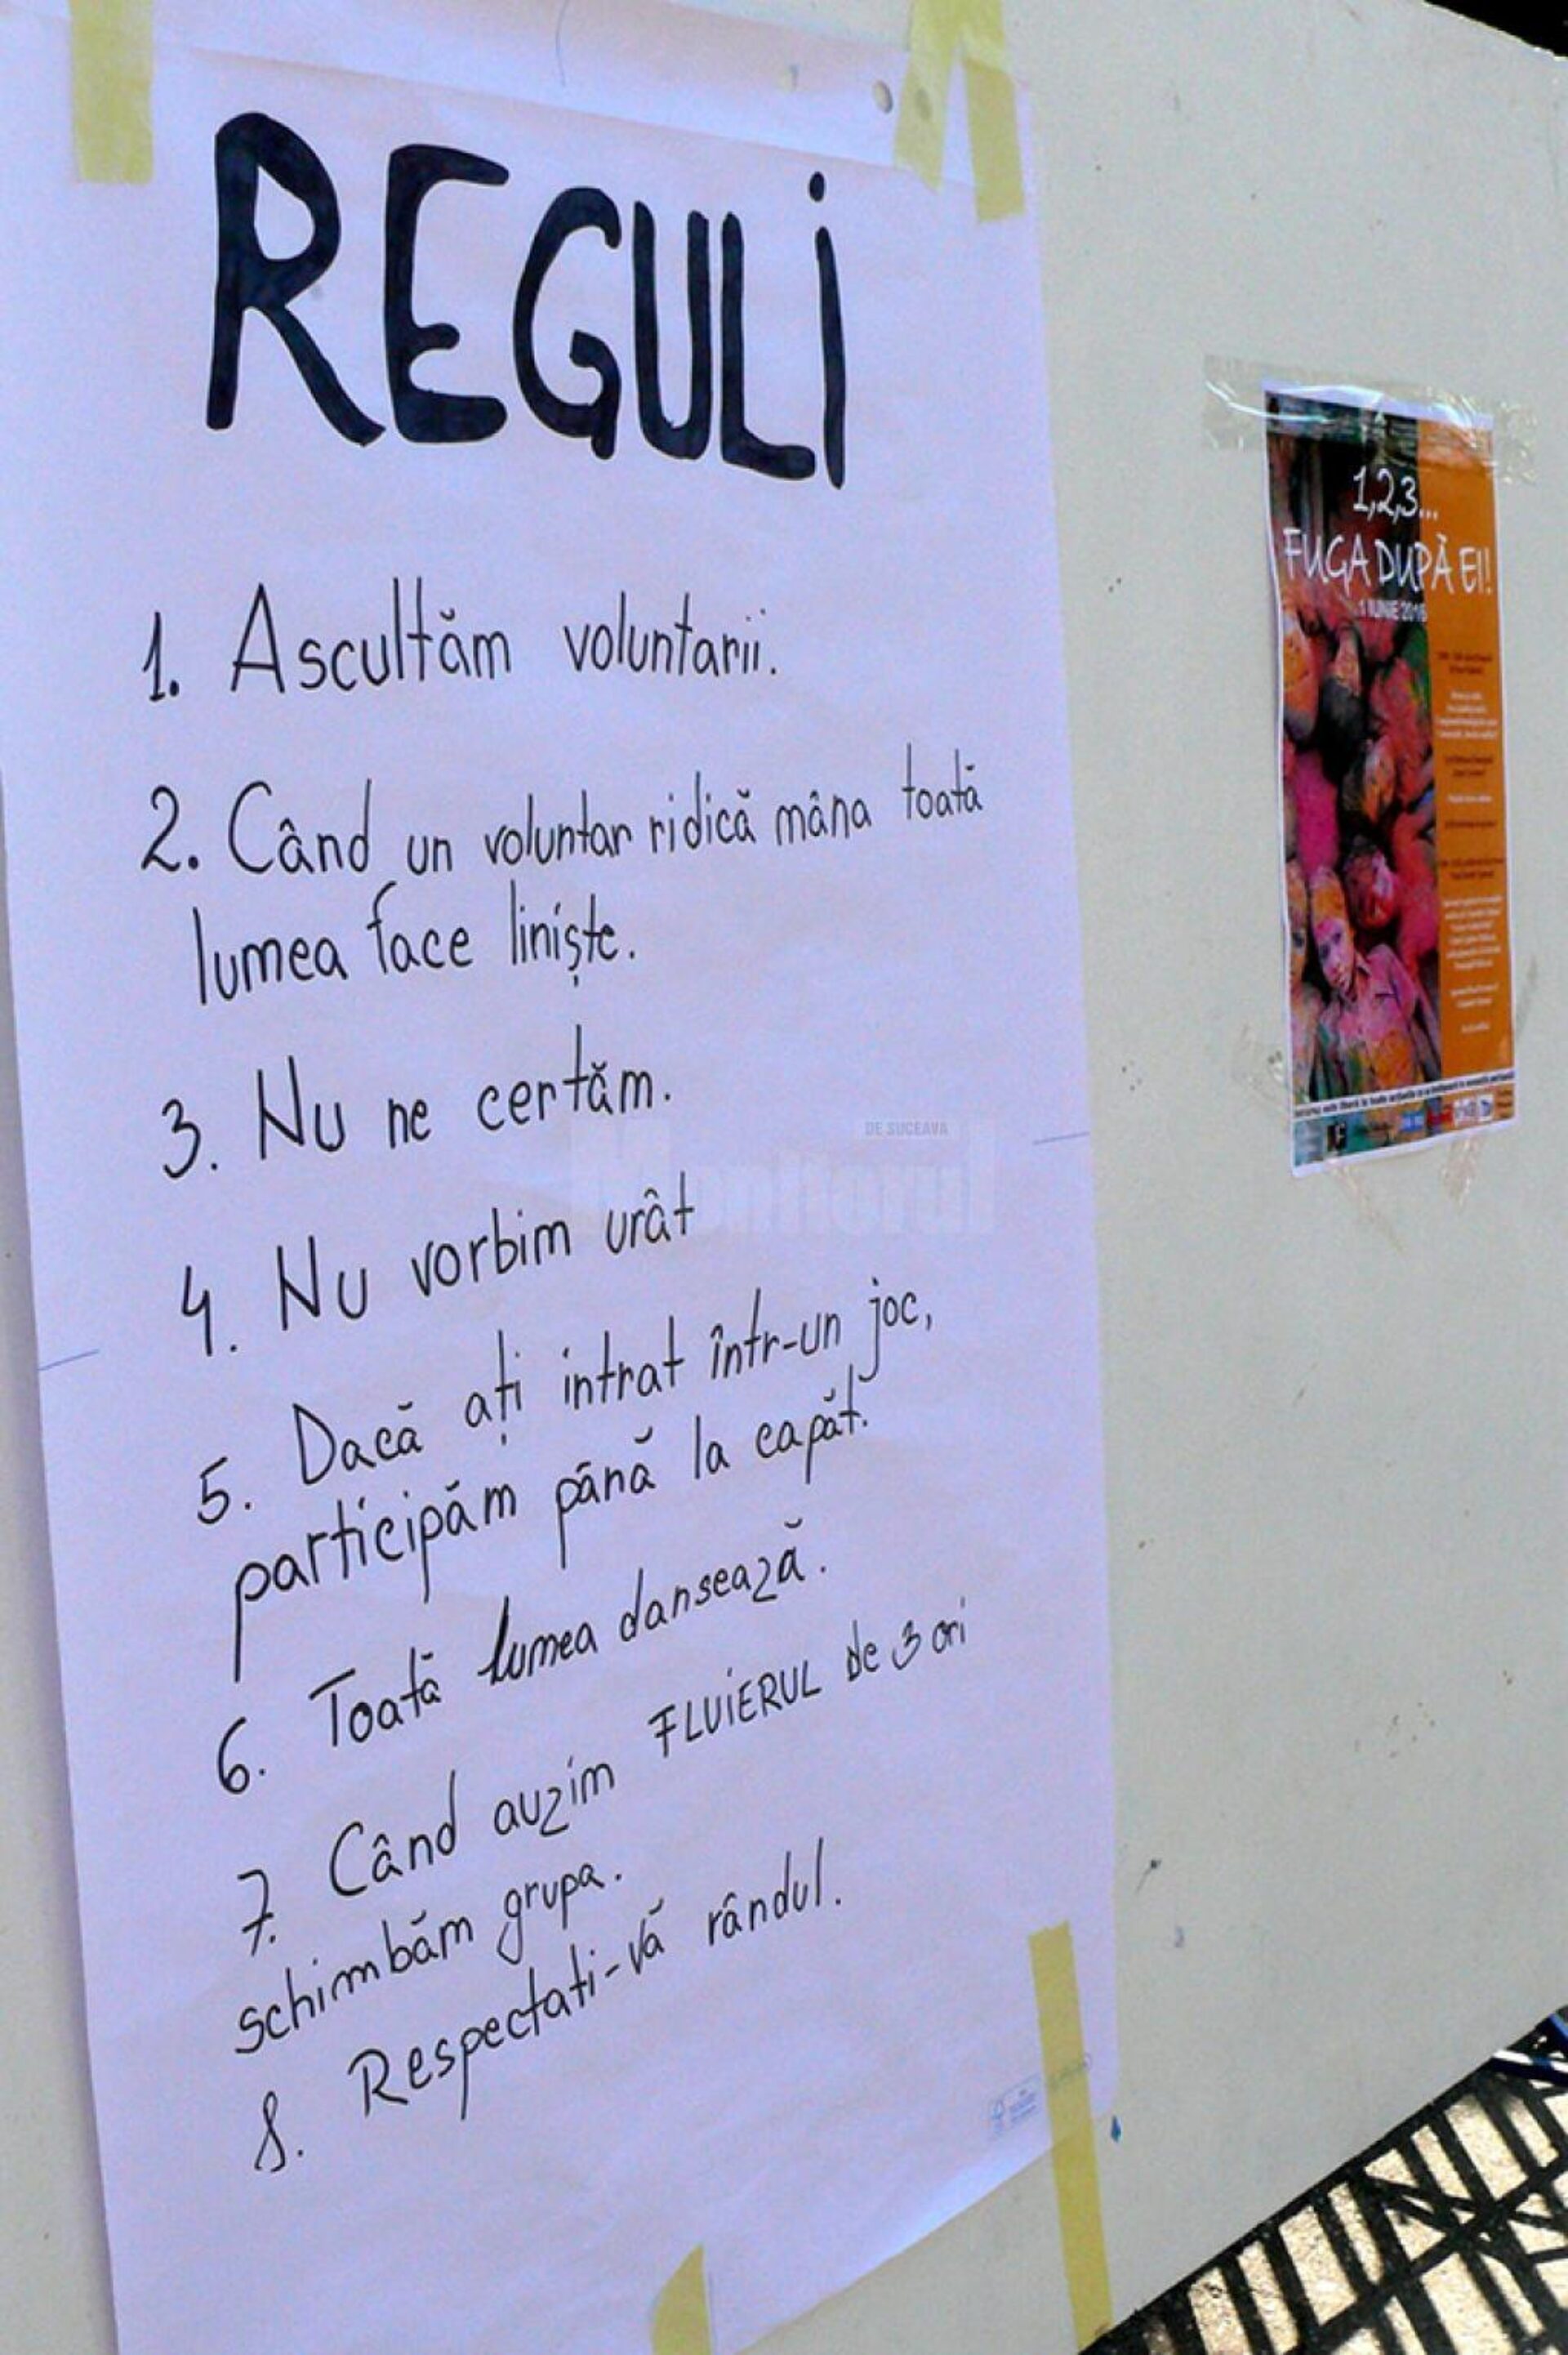 REGULI
1. Ascultăm voluntarii.
2. Când un voluntar ridică mâna toată
lumea face liniște.
3. Nu ne certăm.
4. Nu vorbim urât
5. Dacă ați intrat într-un joc,
participăm până la capăt.
6. Toată lumea dansează.
7. Când auzim FLUIERUL de 3 ori
schimbăm grupa.
8. Respectati-vă rândul.
Monitorul
DE SUCEAVA
1,2,3...
FUGA DUPĂ EI!
1 IUNIE